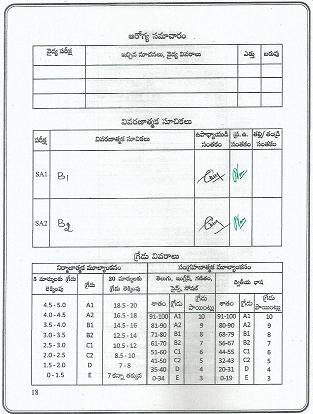 ఆరోగ్య సమాచారం
వైద్య పరీక్ష ఇచ్చిన సూచనలు, వైద్య వివరాలు ఎత్తు బరువు
వివరణాత్మక సూచికలు
పరీక్ష వివరణాత్మక సూచికలు ఉపాధ్యాయుడి సంతకం ప్ర.ఉ. సంతకం తల్లి/తండ్రి సంతకం
SA1 B1
SA2 B2
గ్రేడు వివరాలు
నిర్మాణాత్మక మూల్యాంకనం సంగ్రహణాత్మక మూల్యాంకనం
5 మార్కులకు గ్రేడు లెక్కింపు గ్రేడు 20 మార్కులకు గ్రేడు లెక్కింపు తెలుగు, ఇంగ్లీష్, గణితం, సైన్స్, సోషల్ ద్వితీయ భాష
శాతం గ్రేడు గ్రేడు పాయింట్లు శాతం గ్రేడు గ్రేడు పాయింట్లు
4.5-5.0 A1 18.5-20 91-100 A1 10 90-100 A1 10
4.0-4.5 A2 16.5-18 81-90 A2 9 80-90 A2 9
3.5-4.0 B1 14.5-16 71-80 B1 8 68-79 B1 8
3.0-3.5 B2 12.5-14 61-70 B2 7 56-67 B2 7
2.5-3.0 C1 10.5-12 51-60 C1 6 44-55 C1 6
2.0-2.5 C2 8.5-10 41-50 C2 5 32-43 C2 5
1.5-2.0 D 7-8 35-40 D 4 20-31 D 4
0-1.5 E 7 కన్నా తక్కువ 0-34 E 3 0-19 E 3
18